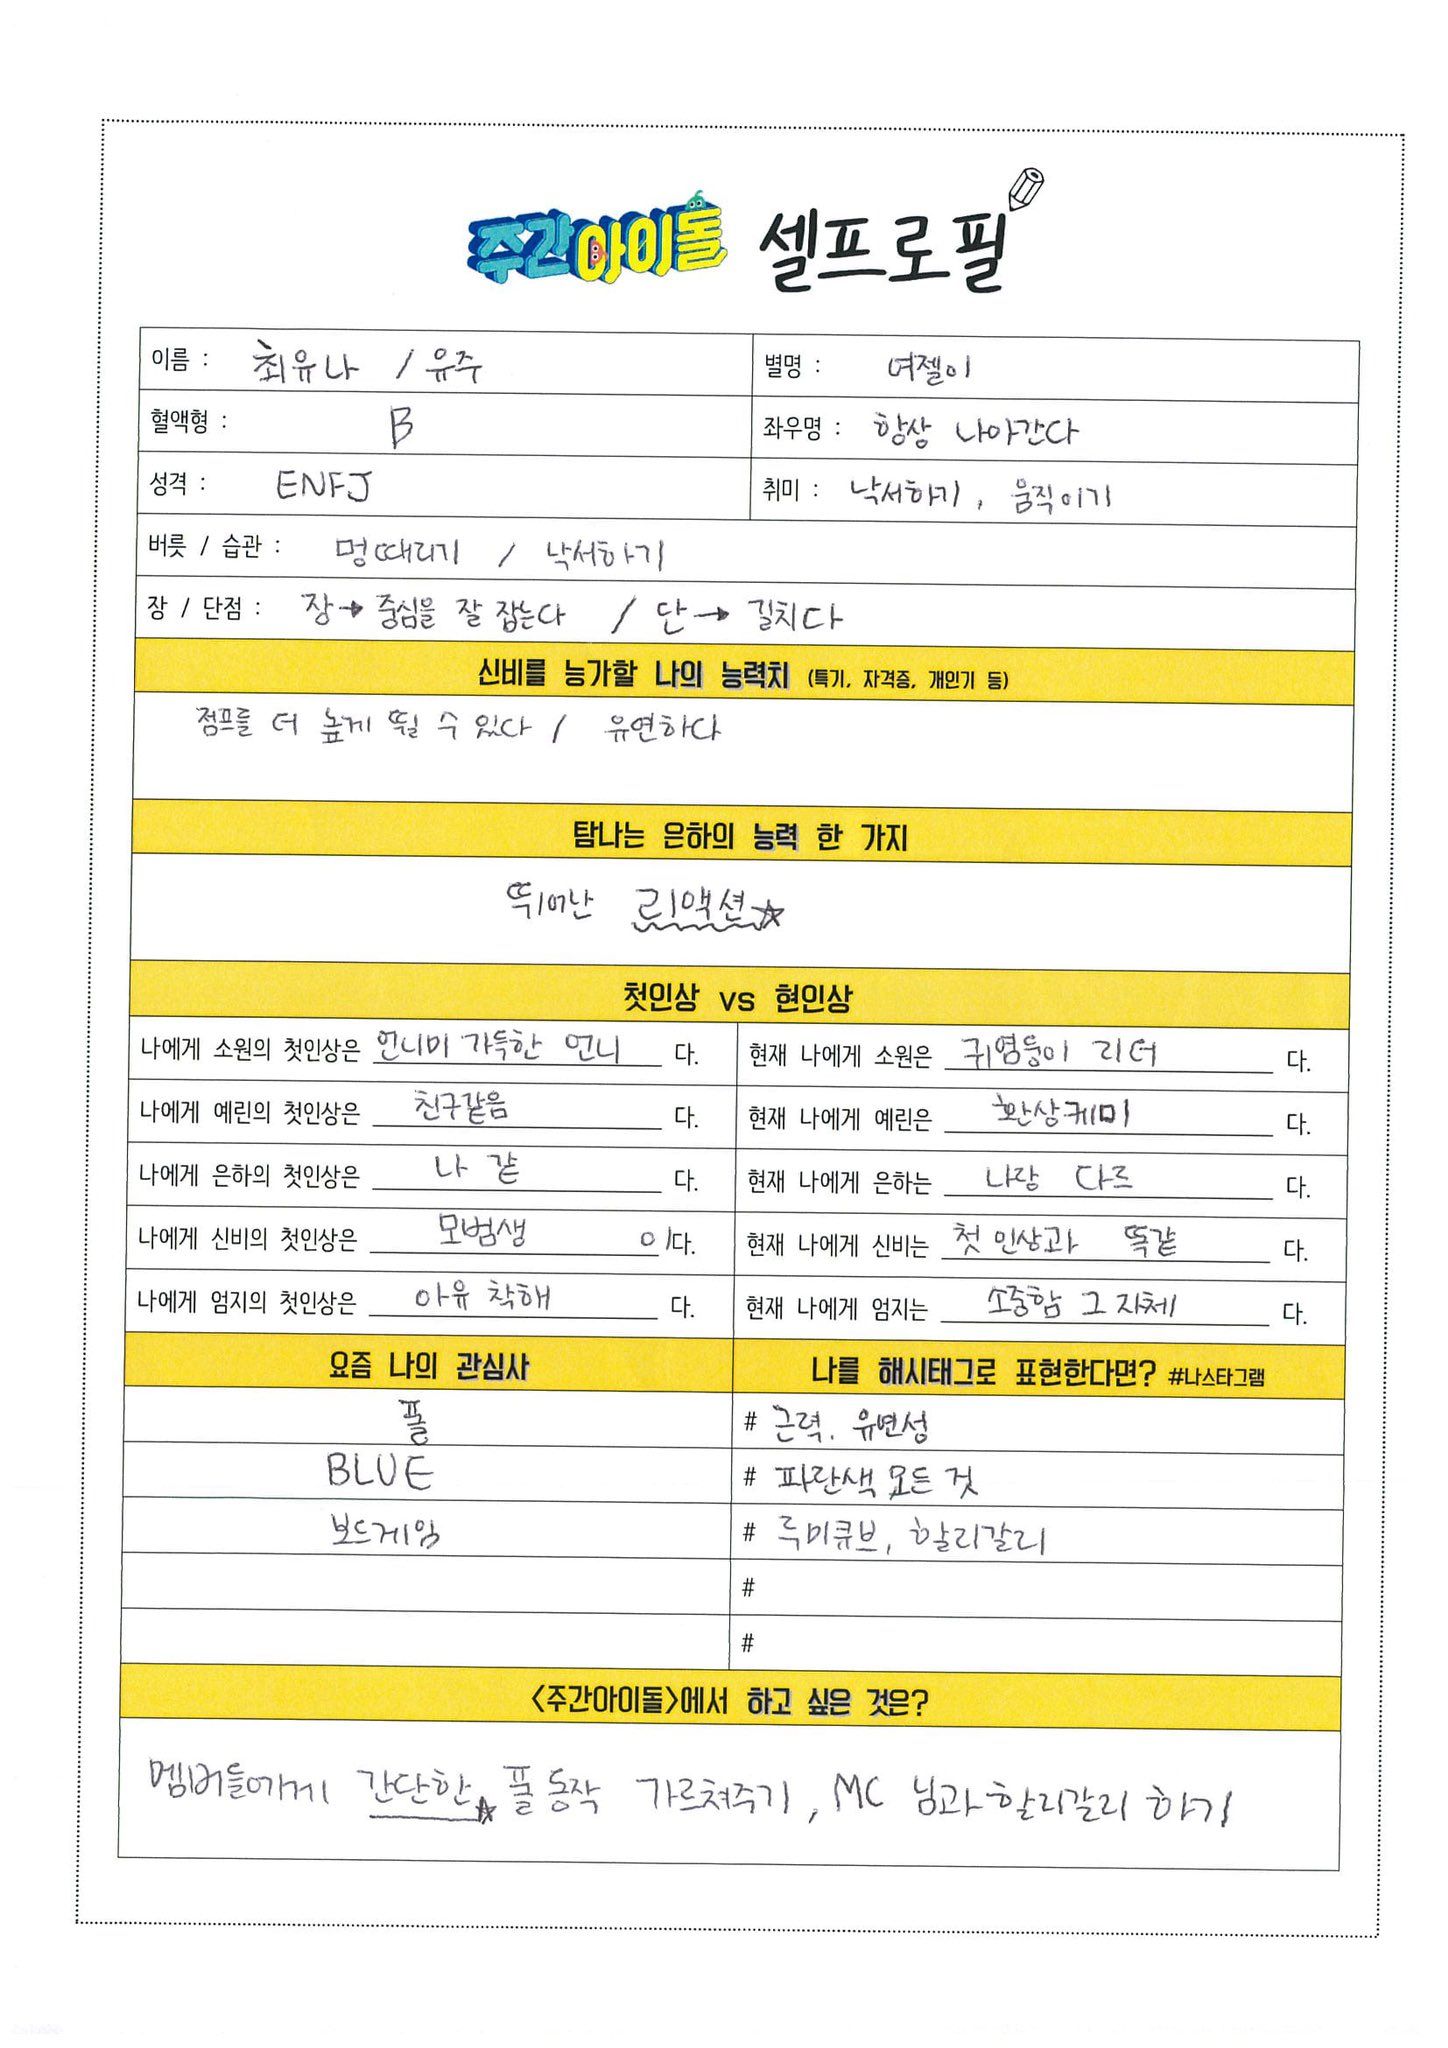 주간아이돌 셀프로필
이름 : 최유나 / 유주 별명 : 여젤이
혈액형 : B 좌우명 : 항상 나아간다
성격 : ENFJ 취미 : 낙서하기, 움직이기
버릇 / 습관 : 멍때리기 / 낙서하기
장 / 단점 : 장→ 중심을 잘 잡는다 / 단→ 길치다
신비를 능가할 나의 능력치 (특기, 자격증, 개인기 등)
점프를 더 높게 뛸 수 있다 / 유연하다
탐나는 은하의 능력 한 가지
뛰어난 리액션☆
첫인상 vs 현인상
나에게 소원의 첫인상은 언니미 가득한 언니 다. 현재 나에게 소원은 귀염둥이 리더 다.
나에게 예린의 첫인상은 친구같음 다. 현재 나에게 예린은 환상케미 다.
나에게 은하의 첫인상은 나 같 다. 현재 나에게 은하는 나랑 다르 다.
나에게 신비의 첫인상은 모범생 이다. 현재 나에게 신비는 첫인상과 똑같 다.
나에게 엄지의 첫인상은 아유 착해 다. 현재 나에게 엄지는 소중함 그 자체 다.
요즘 나의 관심사 나를 해시태그로 표현한다면? #나스타그램
폴 # 근력, 유연성
BLUE # 파란색 모든 것
보드게임 # 루미큐브, 할리갈리
#
#
<주간아이돌>에서 하고 싶은 것은?
멤버들에게 간단한☆ 폴 동작 가르쳐주기, MC 님과 할리갈리 하기